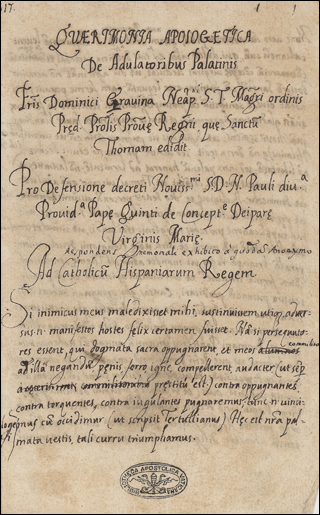 17. 1 1
QUÆRIMONIA APOLOGETICA
De Adulatoribus Palatinis
Fris Dominici Gravina Neapni S. T. Magri ordinis
Pred. Prolis Prouę Regni, quę Sanctu
Thomam edidit
Pro Defensione decreti Nouissmi S. D. N. Pauli diua
Prouida Papę Quinti de Concepte Deiparę
Virginis Marię
Respondens memoriali exhibito a quoda Anonimo
Ad Catholicũ Hispaniarum Regem
Si inimicus meus maledixisset mihi, sustinuissem utiq, aduer-
sus .n. manifestos hostes felix certamen fuisset. Nã si persequuto-
res essent, qui dogmata sacra oppugnarent, et meos
ad illa negandũ pęnis, ferro igne, compellerent, audacter (ut sęp
pręstitũ est) contra oppugnantes
contra torquentes, contra iugulantes pugnaremus, tunc .n.
cũ occidimur (ut scripsit Tertullianus) Hęc est nrã pal-
mata uestis, tali curru triumphamus.
BIBLIOTHECA APOSTOLICA VATICANA